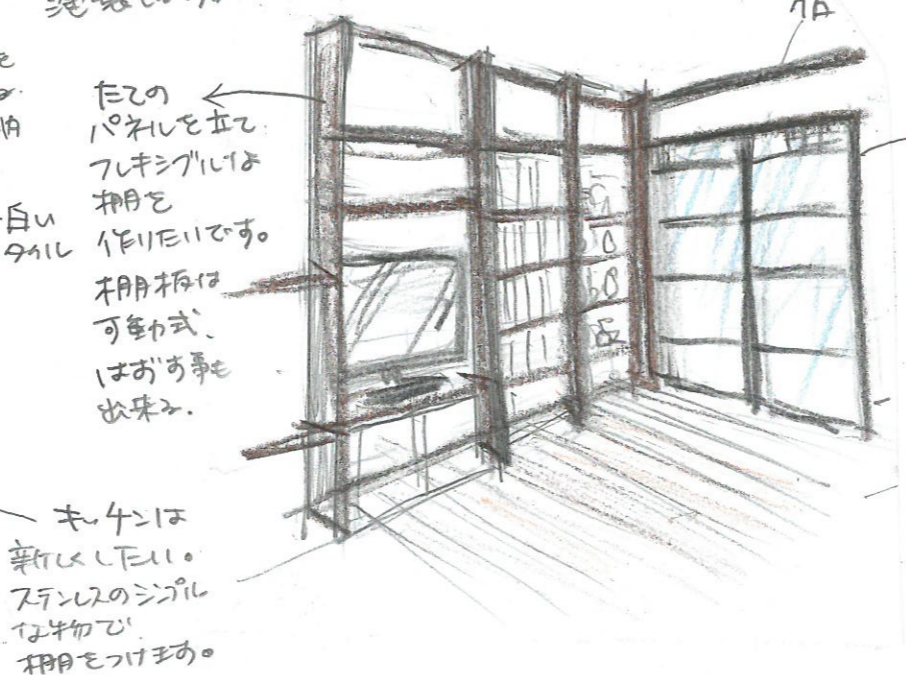 たての
パネルを立て
フレキシブルな
棚を
作りたいです。
棚板は
可動式、
はずす事も
出来る.
白い
タイル
キッチンは
新しくしたい。
ステンレスのシンプル
な物で
棚をつけます。